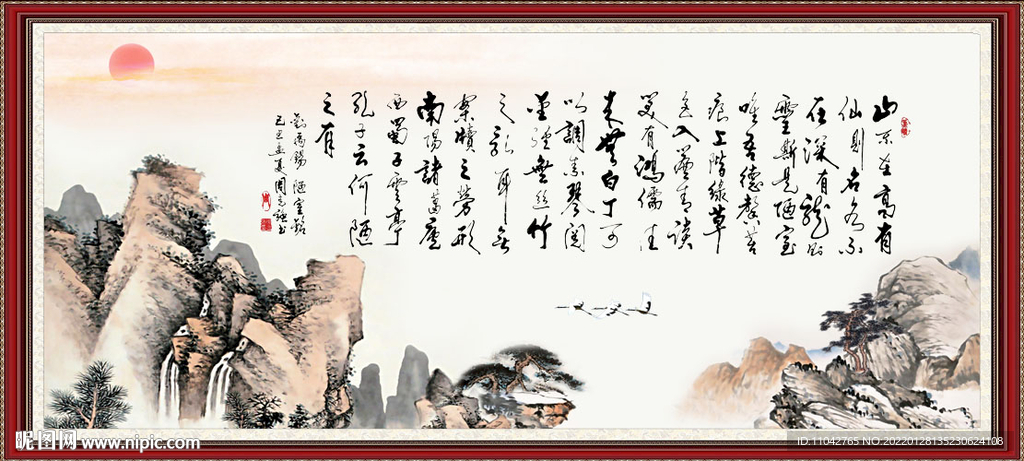 山不在高有
仙則名水不
在深有龍則
靈斯是陋室
唯吾德馨苔
痕上階綠草
色入簾青談
笑有鴻儒往
來無白丁可
以調素琴閱
金經無絲竹
之亂耳無
案牘之勞形
南陽諸葛廬
西蜀子雲亭
孔子云何陋
之有
劉禹錫 陋室銘
己丑孟夏周書
昵图网 www.nipic.com
ID:11042765 NO.20220128135230624108